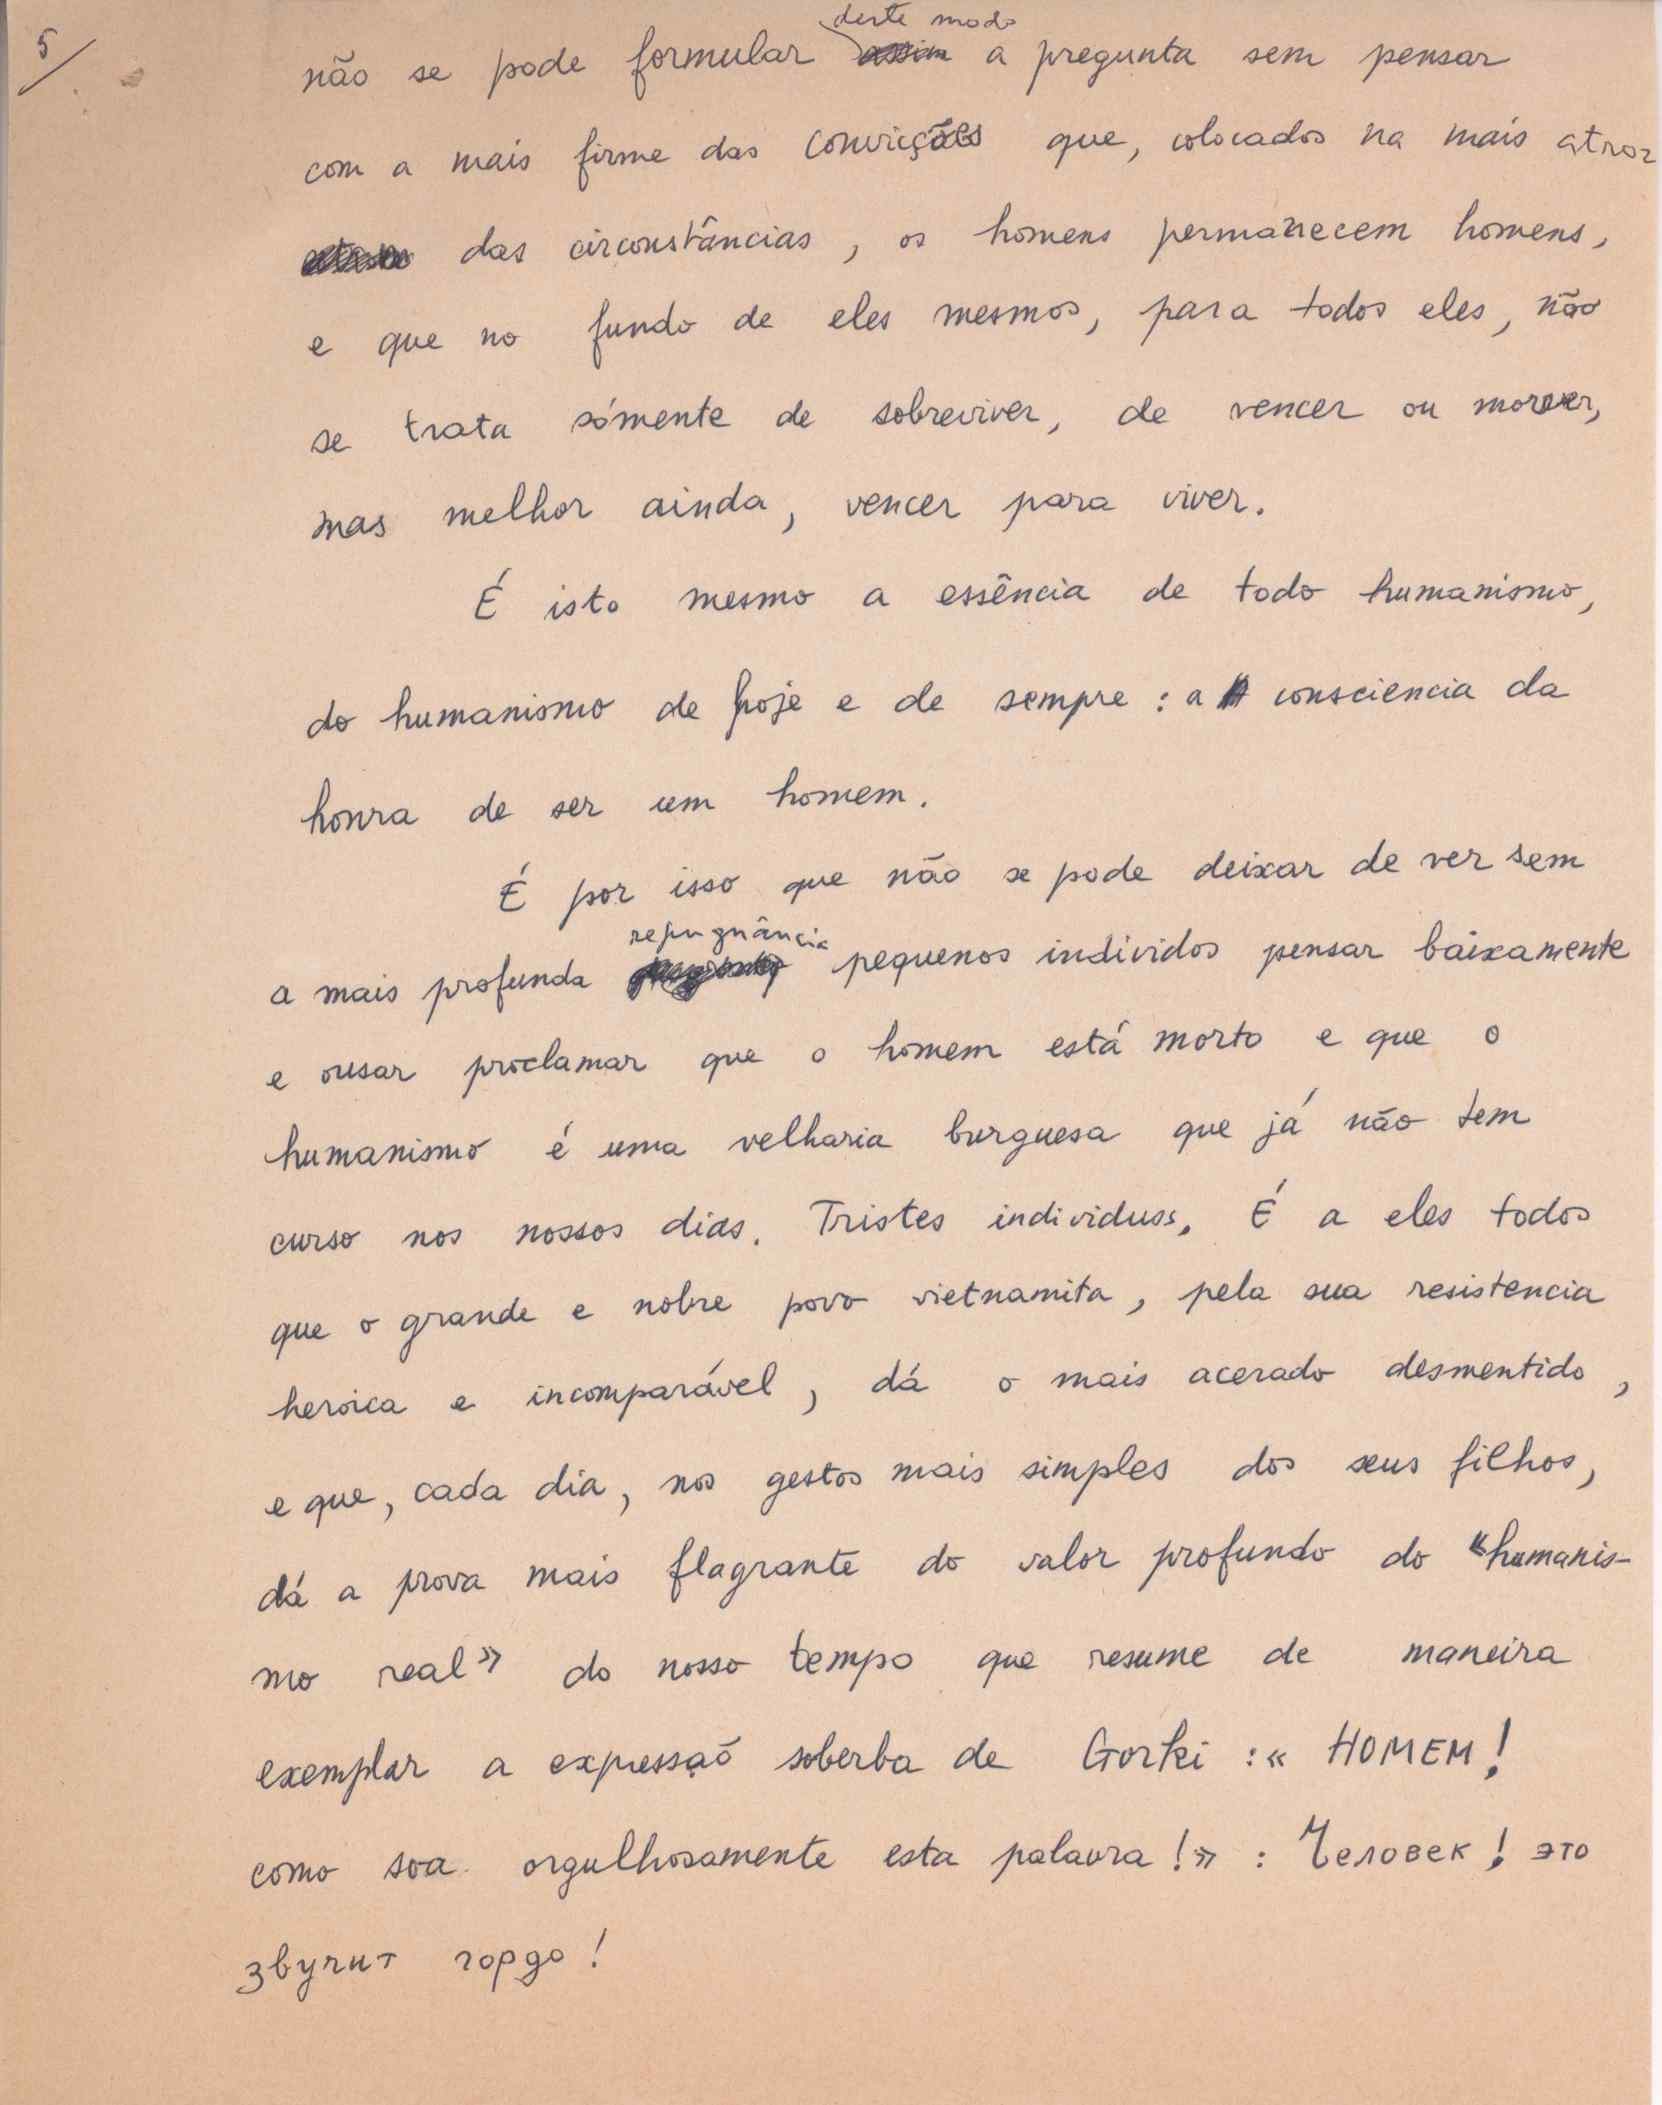 5/
deste modo
não se pode formular assim a pregunta sem pensar
com a mais firme das convicções que, colocados na mais atroz
das circonstâncias, os homens permanecem homens,
e que no fundo de eles mesmos, para todos eles, não
se trata sómente de sobreviver, de vencer ou morrer,
mas melhor ainda, vencer para viver.
É isto mesmo a essência de todo humanismo,
do humanismo de hoje e de sempre : a consciencia da
honra de ser um homem.
É por isso que não se pode deixar de ver sem
repugnância
a mais profunda pequenos individos pensar baixamente
e ousar proclamar que o homem está morto e que o
humanismo é uma velharia burguesa que já não tem
curso nos nossos dias. Tristes individuos. É a eles todos
que o grande e nobre povo vietnamita, pela sua resistencia
heroica e incomparável, dá o mais acerado desmentido,
e que, cada dia, nos gestos mais simples dos seus filhos,
dá a prova mais flagrante do valor profundo do «humanis-
mo real» do nosso tempo que resume de maneira
exemplar a expressaõ soberba de Gorki : « HOMEM!
como soa orgulhosamente esta palavra !» : Человек! это
звучит гордо!